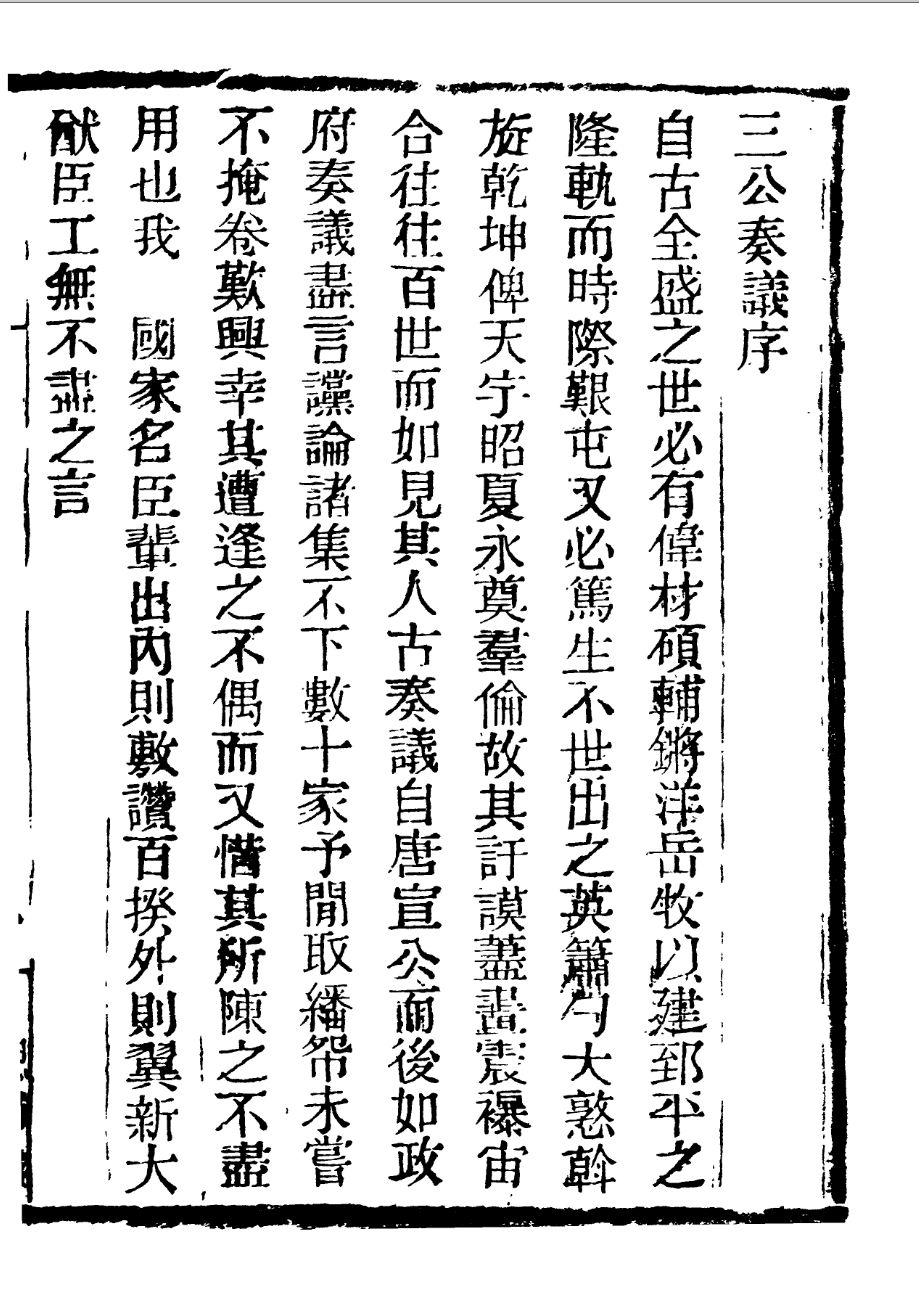 三公奏議序
自古全盛之世必有偉材碩輔鏘洋岳牧以建郅平之
隆軌而時際艱屯又必篤生不世出之英簫勺大憝斡
旋乾坤俾天宇昭夏永奠羣倫故其訏謨藎畫震襮宙
合往往百世而如見其人古奏議自唐宣公而後如政
府奏議盡言讜論諸集不下數十家予閒取繙帋未嘗
不掩卷歎興幸其遭逢之不偶而又惜其所陳之不盡
用也我 國家名臣輩出內則敷讚百揆外則翼新大
猷臣工無不盡之言